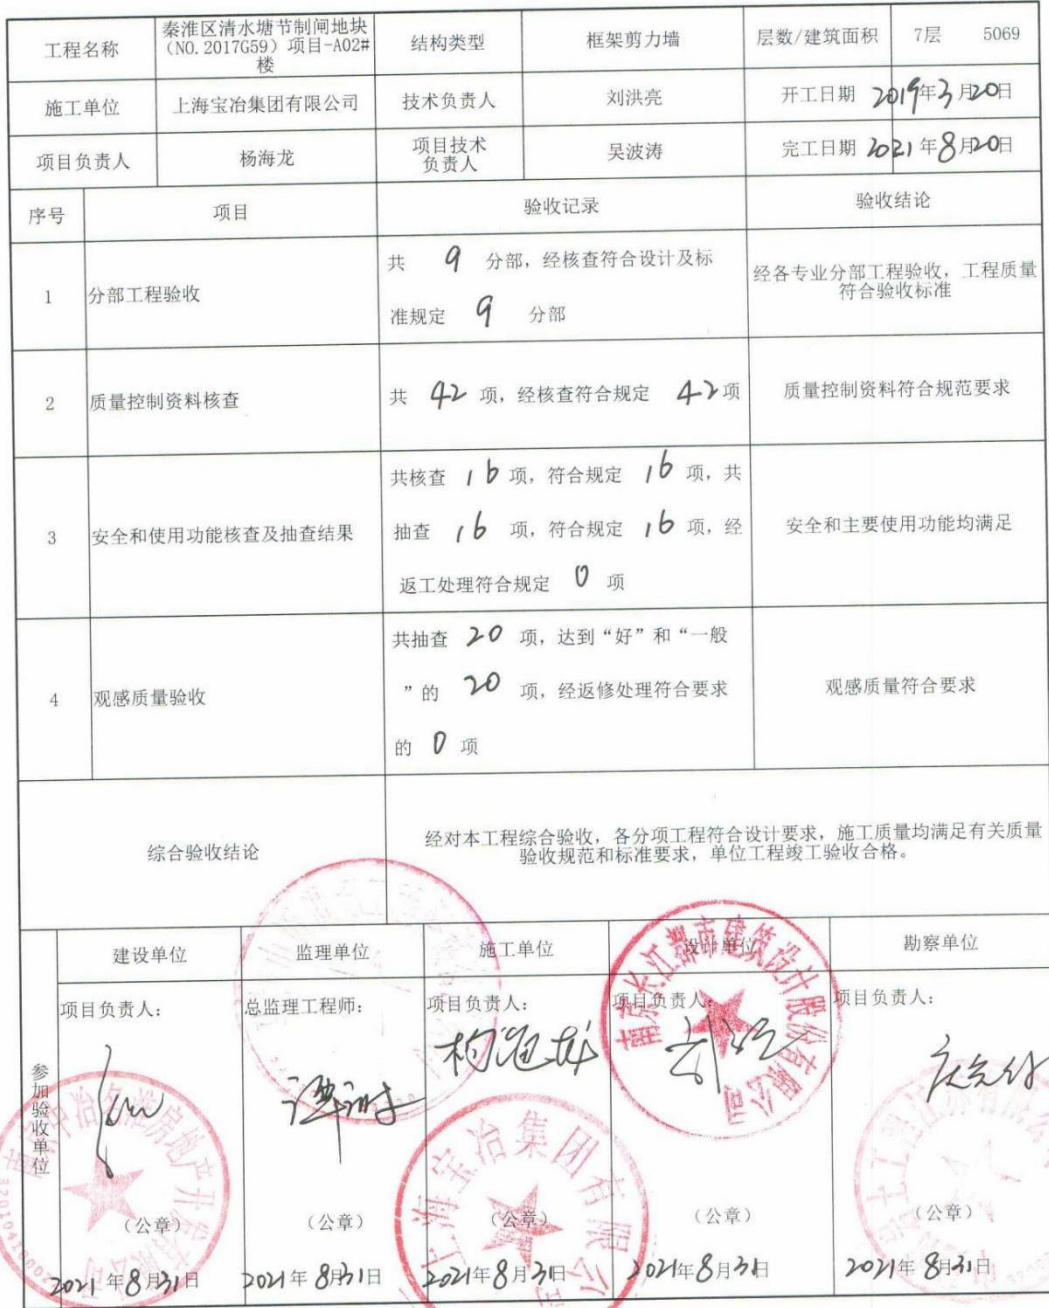 工程名称
秦淮区清水塘节制闸地块
(NO.2017G59)项目-A02#
楼
结构类型
框架剪力墙
层数/建筑面积
7层 5069
施工单位
上海宝冶集团有限公司
技术负责人
刘洪亮
开工日期 2019年3月20日
项目负责人
杨海龙
项目技术
负责人
吴波涛
完工日期 2021年8月20日
序号
项目
验收记录
验收结论
1
分部工程验收
共 9 分部，经核查符合设计及标
准规定 9 分部
经各专业分部工程验收，工程质量
符合验收标准
2
质量控制资料核查
共 42 项，经核查符合规定 42项
质量控制资料符合规范要求
3
安全和使用功能核查及抽查结果
共核查 16 项，符合规定 16 项，共
抽查 16 项，符合规定 16 项，经
返工处理符合规定 0 项
安全和主要使用功能均满足
4
观感质量验收
共抽查 20 项，达到“好”和“一般
”的 20 项，经返修处理符合要求
的 0 项
观感质量符合要求
综合验收结论
经对本工程综合验收，各分项工程符合设计要求，施工质量均满足有关质量
验收规范和标准要求，单位工程竣工验收合格。
参加验收单位
建设单位
监理单位
施工单位
设计单位
勘察单位
项目负责人：
总监理工程师：
项目负责人：
项目负责人：
项目负责人：
南京长江都市建筑设计股份有限公司
上海宝冶集团有限公司
（公章）
（公章）
（公章）
（公章）
（公章）
2021年8月31日
2021年8月31日
2021年8月31日
2021年8月31日
2021年8月31日